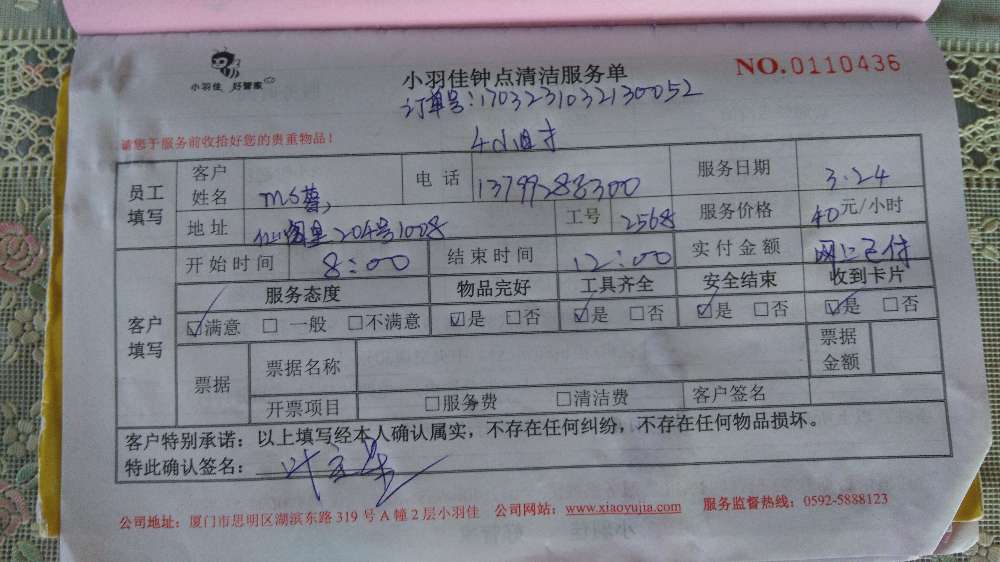 小羽佳 好管家
小羽佳钟点清洁服务单
NO.0110436
订单号:1703231032130052
4小时
请您于服务前收拾好您的贵重物品!
员工填写 客户姓名 电话 13799288300 服务日期 3.24
地址 204号1008 工号 2568 服务价格 40元/小时
开始时间 8:00 结束时间 12:00 实付金额 网上已付
客户填写 服务态度 物品完好 工具齐全 安全结束 收到卡片
☑满意 □一般 □不满意 ☑是 □否 ☑是 □否 ☑是 □否 ☑是 □否
票据 票据名称 票据金额
开票项目 □服务费 □清洁费 客户签名
客户特别承诺:以上填写经本人确认属实,不存在任何纠纷,不存在任何物品损坏。
特此确认签名:
公司地址:厦门市思明区湖滨东路319号A幢2层小羽佳 公司网站:www.xiaoyujia.com 服务监督热线:0592-5888123